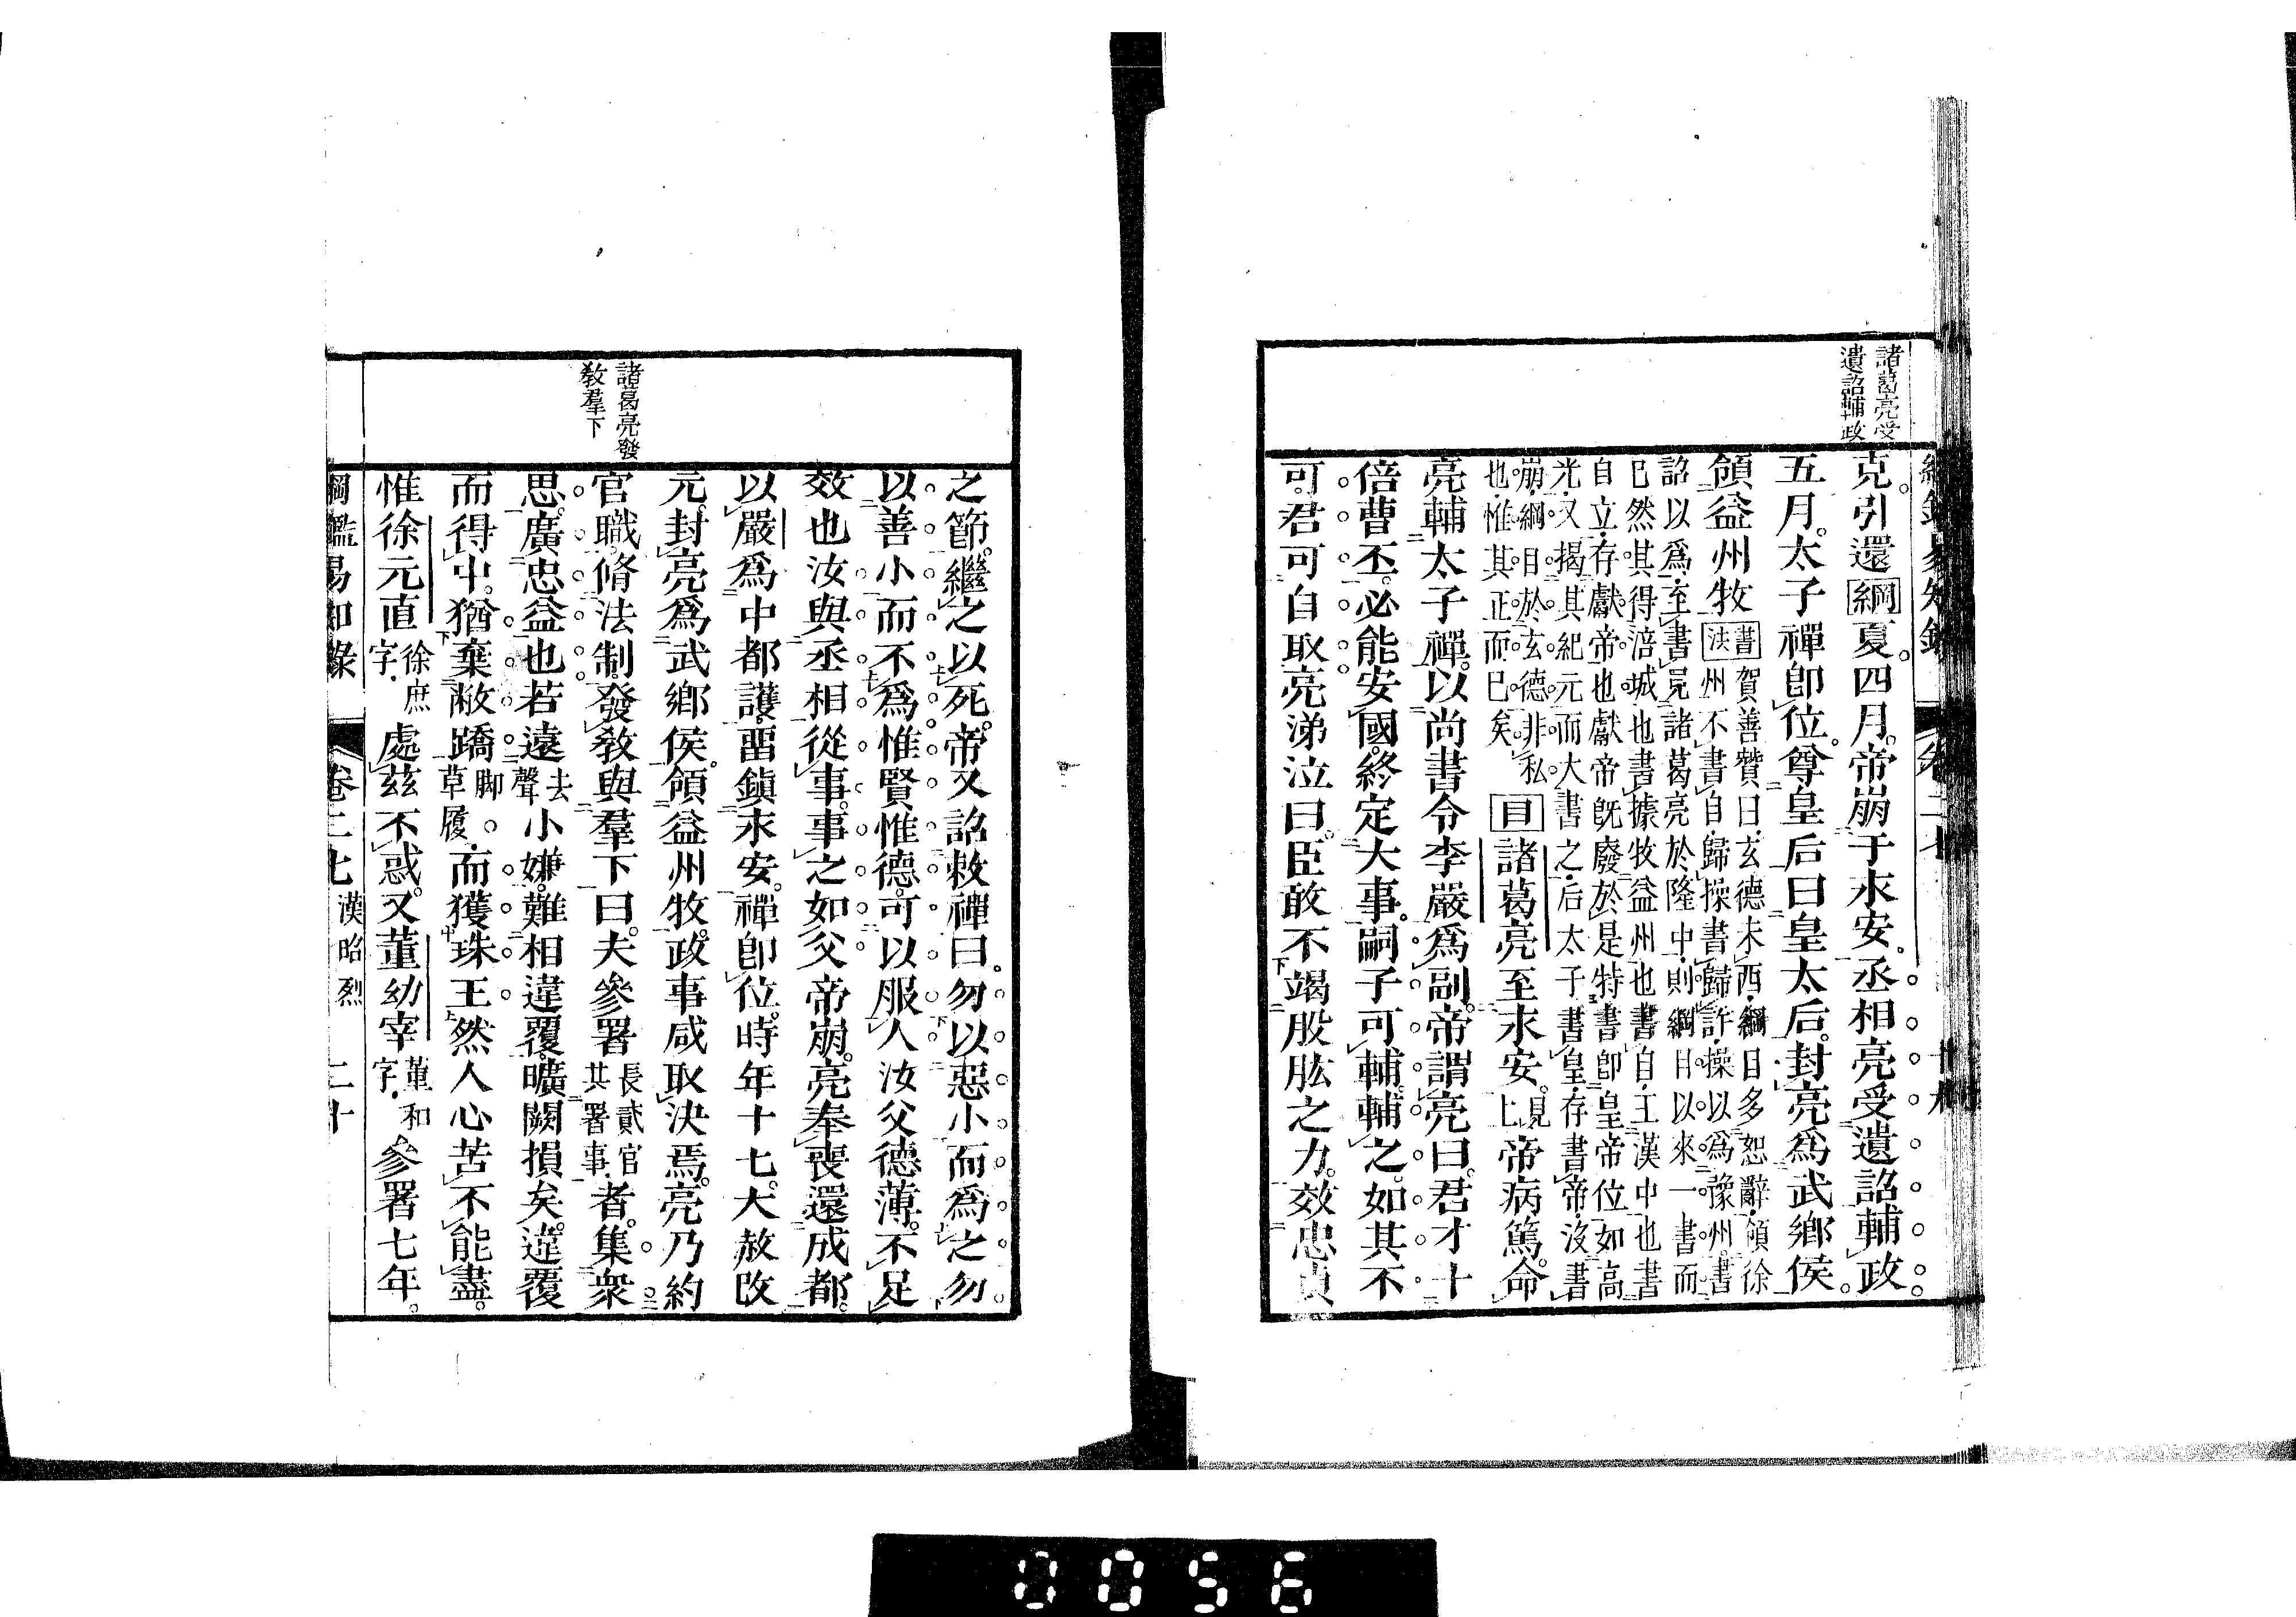 諸葛亮受
遺詔輔政
克。引還綱夏。四月。帝崩于永安。丞相亮受遺詔輔政
五月。太子禪卽位。尊皇后曰皇太后。封亮爲武鄕侯。
領益州牧書法賀善贊曰玄德未西綱目多恕辭領徐
州不書自歸操書歸許操以爲豫州書
詔以爲至書見諸葛亮於隆中則綱目以來一書而
已然其得涪城也書據牧益州也書自王漢中也書
自立存獻帝也獻帝旣廢於是特書卽皇帝位如高
光又揭其紀元而大書之后太子書皇存書帝沒書
崩綱目於玄德非私
也惟其正而已矣
目諸葛亮至永安。見上帝病篤。命
亮輔太子禪。以尚書令李嚴爲副。帝謂亮曰。君才十
倍曹丕。必能安國。終定大事。嗣子可輔。輔之。如其不
可。君可自取亮涕泣曰。臣敢不竭股肱之力。效忠貞
諸葛亮發
敎羣下
之節。繼之以死。帝又詔敕禪曰。勿以惡小而爲之勿
以善小而不爲惟賢惟德。可以服人汝父德薄。不足
效也汝與丞相從事。事之如父帝崩。亮奉喪還成都。
以嚴爲中都護。畱鎭永安。禪卽位。時年十七。大赦改
元。封亮爲武鄕侯。領益州牧。政事咸取決焉。亮乃約
官職。脩法制。發敎與羣下曰。夫參署長貳官其署事者。集衆
思。廣忠益也若遠去聲小嫌。難相違覆。曠闕損矣。違覆
而得中。猶棄敝蹻脚。草履而獲珠玉然人心苦不能盡。
惟徐元直徐庶字處茲不惑。又董幼宰董和字參署七年。
綱鑑易知錄 卷二七 漢昭烈 二十